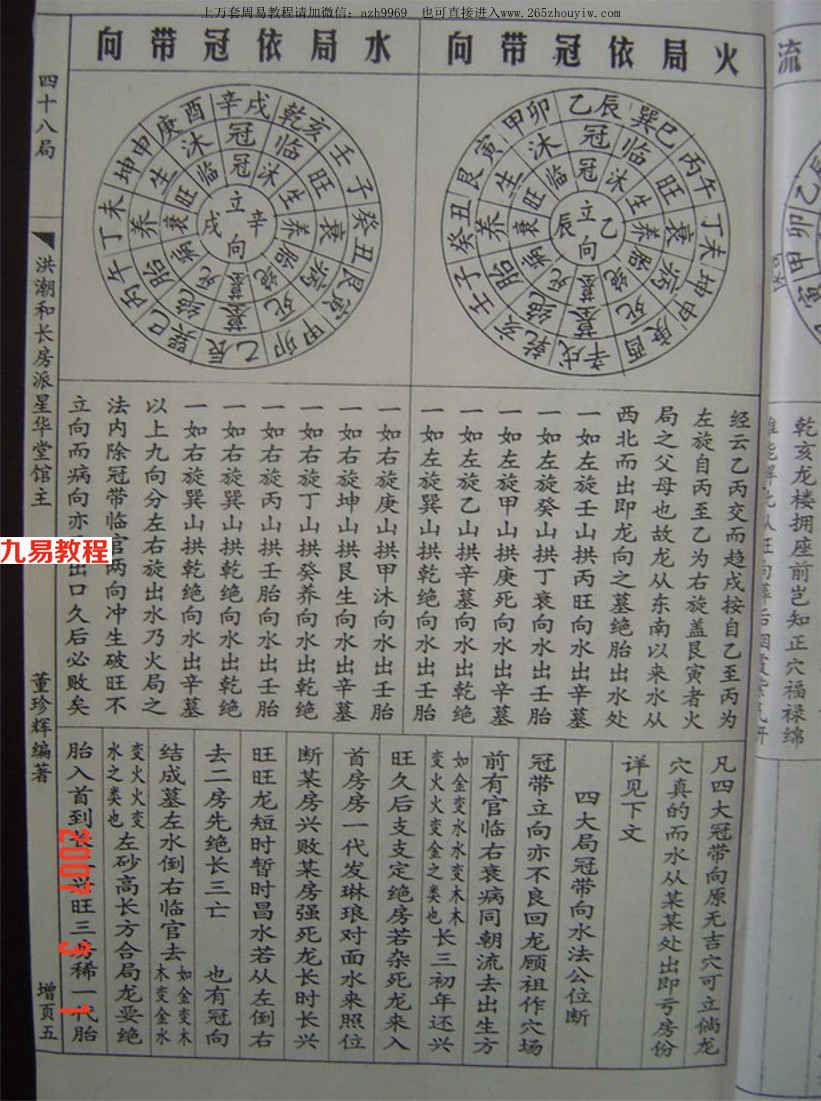 上万套周易教程请加微信：azh9969　也可直接进入www.265zhouyiw.com
火局依冠带向
水局依冠带向
流
四十八局
洪潮和长房派星华堂馆主
董珍辉编著
增页五
乙辰
巽巳
丙午
丁未
坤申
庚酉
辛戌
乾亥
壬子
癸丑
艮寅
甲卯
冠
临
旺
衰
病
死
墓
绝
胎
养
生
沐
冠
沐
生
养
胎
绝
墓
死
病
衰
旺
临
立向
乙
辰
辛戌
乾亥
壬子
癸丑
艮寅
甲卯
乙辰
巽巳
丙午
丁未
坤申
庚酉
冠
临
旺
衰
病
死
墓
绝
胎
养
生
沐
冠
沐
生
养
胎
绝
墓
死
病
衰
旺
临
立向
辛
戌
乾亥龙楼拥座前岂知正穴福禄绵
经云乙丙交而趋戌按自乙至丙为
左旋自丙至乙为右旋盖艮寅者火
局之父母也故龙从东南以来水从
西北而出即龙向之墓绝胎出水处
一如左旋壬山拱丙旺向水出壬胎
一如左旋癸山拱丁衰向水出辛墓
一如左旋甲山拱庚死向水出辛墓
一如左旋乙山拱辛墓向水出乾绝
一如左旋巽山拱乾绝向水出壬胎
一如右旋庚山拱甲沐向水出壬胎
一如右旋坤山拱艮生向水出辛墓
一如右旋丁山拱癸养向水出乾绝
一如右旋丙山拱壬胎向水出壬胎
一如右旋巽山拱乾绝向水出乾绝
一如右旋巽山拱乾绝向水出辛墓
以上九向分左右旋出水乃火局之
法内除冠带临官两向冲生破旺不
立向而病向亦出口久后必败矣
凡四大冠带向原无吉穴可立倘龙
穴真的而水从某某处出即亏房份
详见下文
四大局冠带向水法公位断
冠带立向亦不良回龙顾祖作穴场
前有官临右衰病同朝流去出生方
如金变水水变木木
变火火变金之类也
长三初年还兴
旺久后支支定绝房若杂死龙来入
首房房一代发琳琅对面水来照位
断某房兴败某房强死龙长时长兴
旺旺龙短时暂时昌水若从左倒右
去二房先绝长三亡　也有冠向
结成墓左水倒右临官去
如金变木
木变金水
变火火变
水之类也
左砂高长方合局龙要绝
胎入首到长旺三房稀一代胎
九易教程
2007 3 1